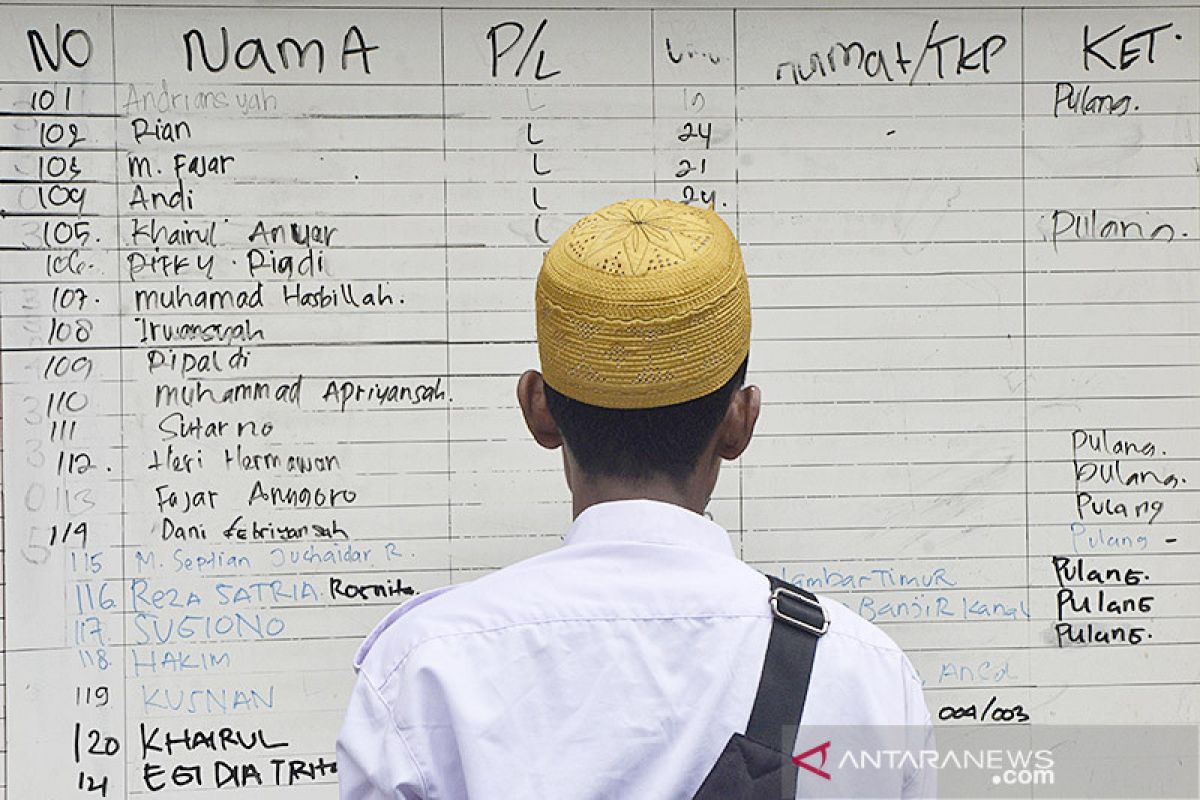 NO NamA P/L umu. /TKP KET.
101 Andriansyah L Pulang.
102 Rian L 24 -
103 m. Fajar L 21
104 Andi L 24.
105. Khairul Anwar L Pulang.
106. Rifky. Riadi
107. muhamad Hasbillah.
108 Irwansyah
109 Ripaldi
110 muhammad Apriyansah.
111 Sutarno
112. Heri Hermawan Pulang.
113 Fajar Anggoro Pulang.
114 Dani febriyansah Pulang
115 M. Septian Juchaidar R. Pulang -
116 ReZA SATRIA Rosnita. Jambar TIMUR PULANG.
117. SUGIONO BANJIR Kanal PULANG
118. HAKIM PULANG.
119 KUSNAN ANCOL
120 KHAIRUL 004/003
121 EGI DIATRI
ANTARANEWS
.com